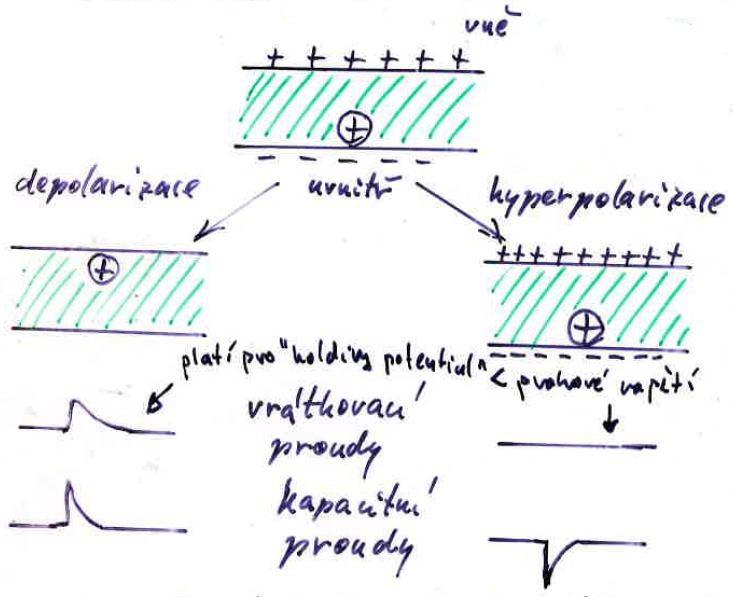 vně
+ + + + + +
+
uvnitř
depolarizace
hyperpolarizace
+
+++ + + + + + +
+
platí pro "holding potential" < prahové napětí
vrátkovací
proudy
kapacitní
proudy